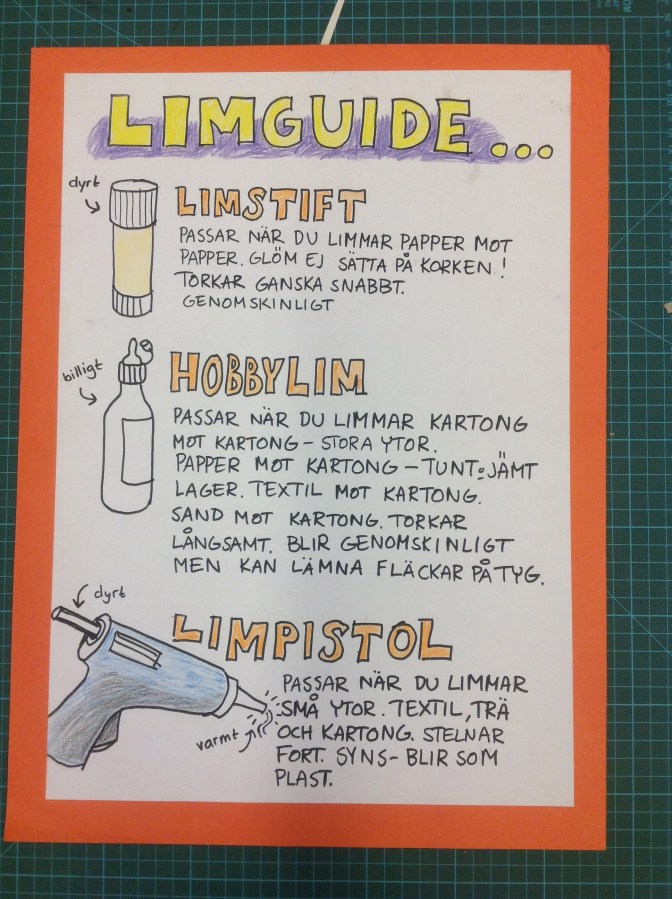 LIMGUIDE...
dyrt
LIMSTIFT
PASSAR NÄR DU LIMMAR PAPPER MOT
PAPPER. GLÖM EJ SÄTTA PÅ KORKEN!
TORKAR GANSKA SNABBT.
GENOMSKINLIGT
billigt
HOBBYLIM
PASSAR NÄR DU LIMMAR KARTONG
MOT KARTONG - STORA YTOR.
PAPPER MOT KARTONG - TUNT & JÄMT
LAGER. TEXTIL MOT KARTONG.
SAND MOT KARTONG. TORKAR
LÅNGSAMT. BLIR GENOMSKINLIGT
MEN KAN LÄMNA FLÄCKAR PÅ TYG.
dyrt
LIMPISTOL
PASSAR NÄR DU LIMMAR
SMÅ YTOR. TEXTIL, TRÄ
OCH KARTONG. STELNAR
FORT. SYNS - BLIR SOM
PLAST.
varmt